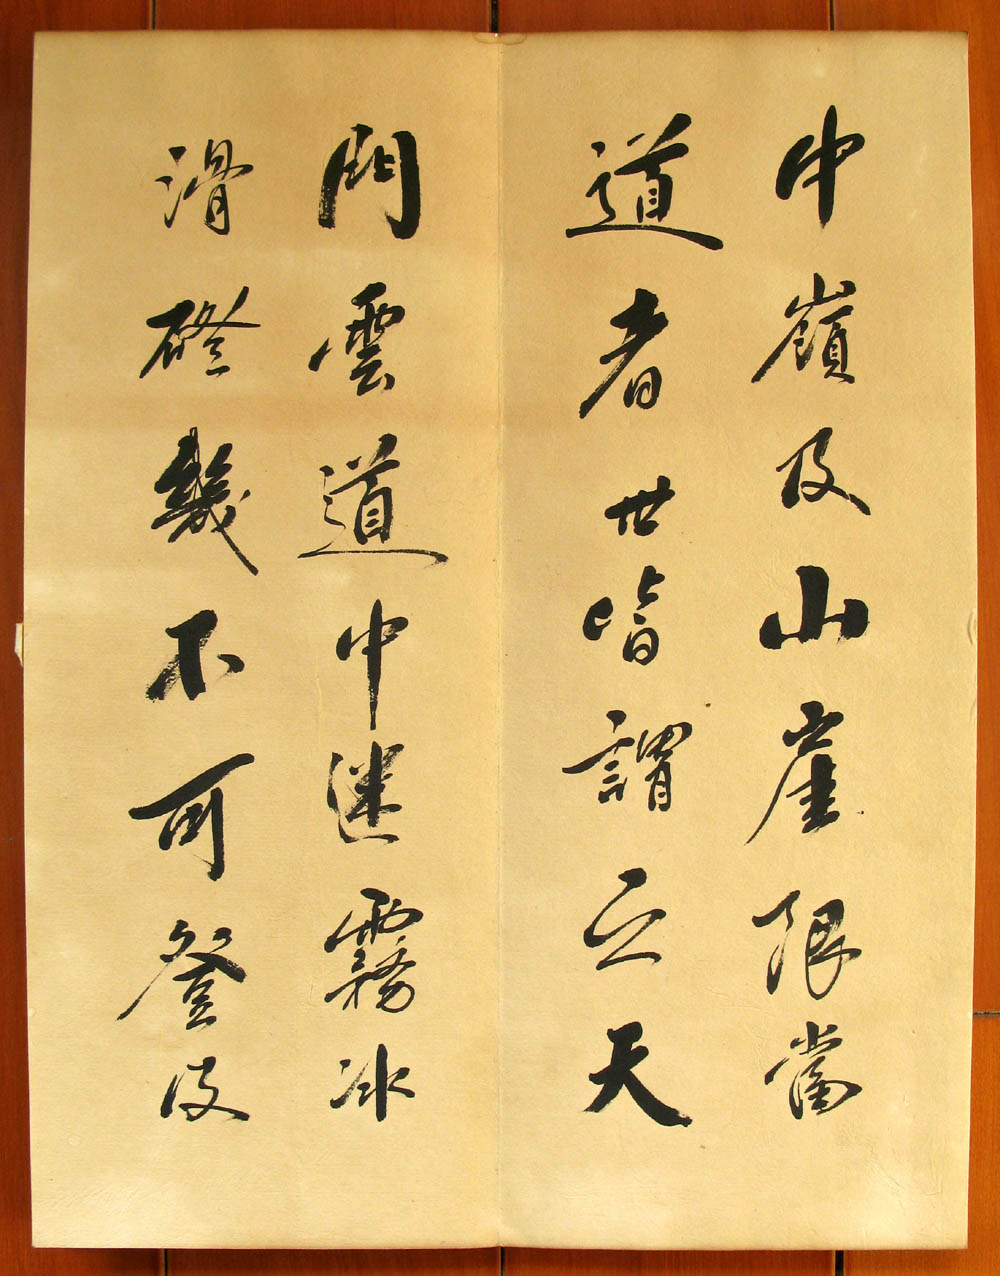 中嶺及山崖限當
道者世皆謂之天
門雲道中迷霧冰
滑磴幾不可登及